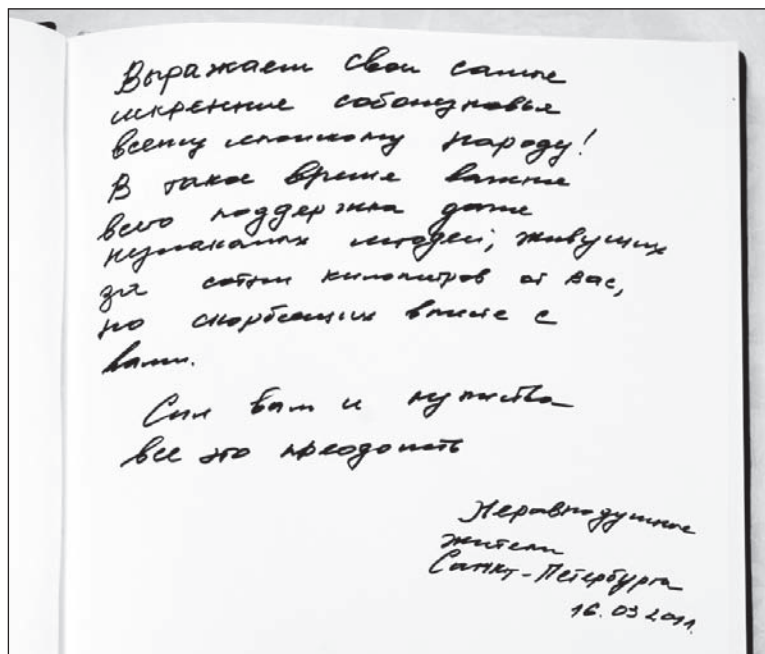 Выражаем свои самые
искренние соболезнования
всему японскому народу!
В такое время важнее
всего поддержка даже
незнакомых людей, живущих
за сотни километров от вас,
но скорбящих вместе с
вами.
Сил вам и мужества
все это преодолеть
Неравнодушные
жители
Санкт-Петербурга
16.03.2011.